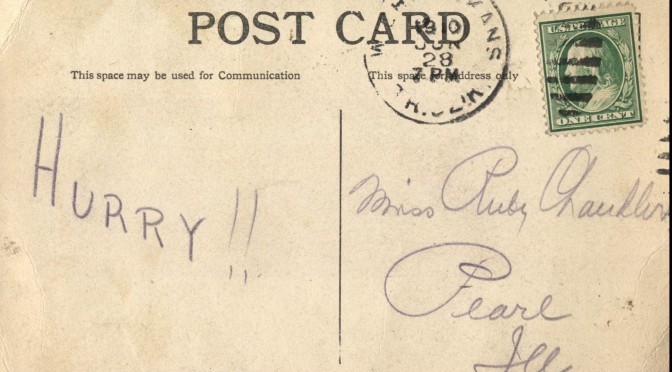 POST CARD
This space may be used for Communication
This space for Address only
VANS
JUN
28
7 PM
U.S. POSTAGE
ONE CENT
HURRY!!
Miss Ruby Chandler
Pearl
Ill